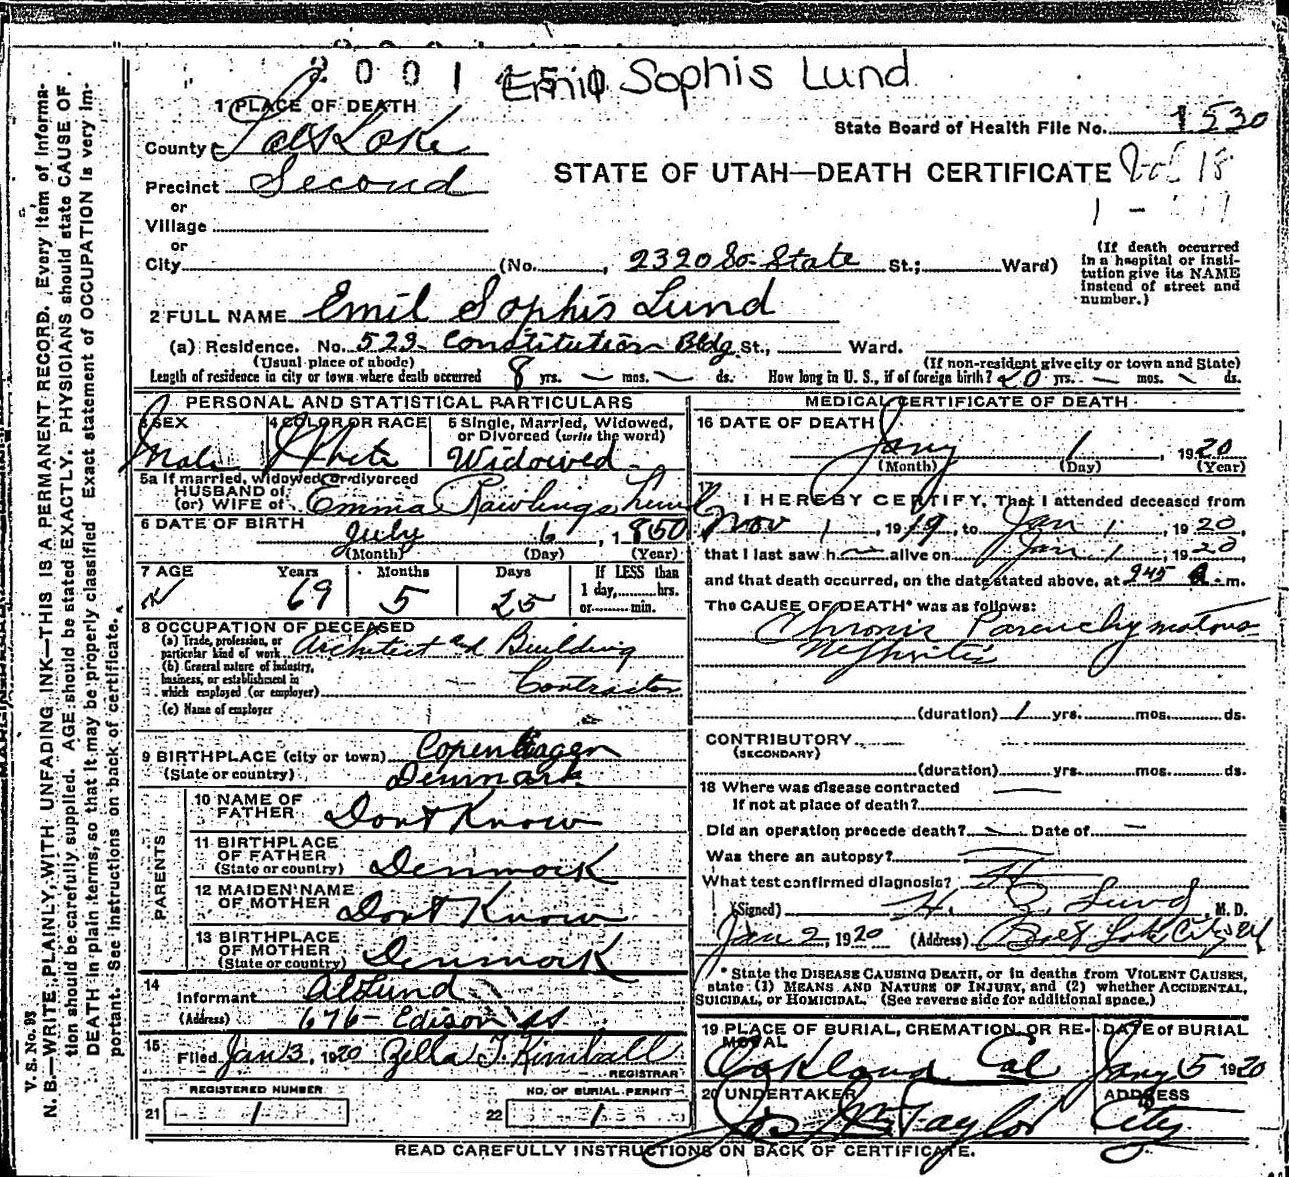 Emil Sophis Lund
1 PLACE OF DEATH
State Board of Health File No. 1530
County Salt Lake
STATE OF UTAH—DEATH CERTIFICATE
Precinct Second
or
Village
or
City (No. , 2320 So. State St.; Ward)
(If death occurred in a hospital or institution give its NAME instead of street and number.)
2 FULL NAME Emil Sophis Lund
(a) Residence. No. 523 Constitution Bldg St., Ward.
(Usual place of abode) (If non-resident give city or town and State)
Length of residence in city or town where death occurred 8 yrs. — mos. — ds. How long in U. S., if of foreign birth? 20 yrs. — mos. ds.
PERSONAL AND STATISTICAL PARTICULARS
3 SEX Male
4 COLOR OR RACE White
5 Single, Married, Widowed, or Divorced (write the word) Widowed
5a If married, widowed or divorced
HUSBAND of
(or) WIFE of Emma Rawlings Lund
6 DATE OF BIRTH July 6, 1850
(Month) (Day) (Year)
7 AGE Years Months Days If LESS than
69 5 25 1 day, hrs.
or min.
8 OCCUPATION OF DECEASED
(a) Trade, profession, or particular kind of work Architect and Building
(b) General nature of industry, business, or establishment in which employed (or employer) Contractor
(c) Name of employer
9 BIRTHPLACE (city or town) Copenhagen
(State or country) Denmark
PARENTS
10 NAME OF FATHER Dont Know
11 BIRTHPLACE OF FATHER (State or country) Denmark
12 MAIDEN NAME OF MOTHER Dont Know
13 BIRTHPLACE OF MOTHER (State or country) Denmark
14
Informant Lund
(Address) 676 Edison St.
15 Filed Jan 3, 1920 Zella T Kimball
REGISTRAR
REGISTERED NUMBER
21 1
NO. OF BURIAL PERMIT
22 1
MEDICAL CERTIFICATE OF DEATH
16 DATE OF DEATH Jany 1, 1920
(Month) (Day) (Year)
17 I HEREBY CERTIFY, That I attended deceased from
Nov 1, 1919, to Jan 1, 1920
that I last saw h alive on Jan 1, 1920
and that death occurred, on the date stated above, at 945 a. m.
The CAUSE OF DEATH* was as follows:
Chronic Parenchymatous
Nephritis
(duration) 1 yrs. mos. ds.
CONTRIBUTORY
(SECONDARY)
(duration) yrs. mos. ds.
18 Where was disease contracted
If not at place of death?
Did an operation precede death? — Date of —
Was there an autopsy?
What test confirmed diagnosis?
(Signed) Lund M. D.
Jan 2, 1920 (Address) Salt Lake City
* State the DISEASE CAUSING DEATH, or in deaths from VIOLENT CAUSES,
state (1) MEANS AND NATURE OF INJURY, and (2) whether ACCIDENTAL,
SUICIDAL, or HOMICIDAL. (See reverse side for additional space.)
19 PLACE OF BURIAL, CREMATION, OR REMOVAL Oakland Cal
DATE of BURIAL Jany 5 1920
20 UNDERTAKER Taylor
ADDRESS City
READ CAREFULLY INSTRUCTIONS ON BACK OF CERTIFICATE.
V. S. No. 93
N. B.—WRITE PLAINLY, WITH UNFADING INK—THIS IS A PERMANENT RECORD. Every item of informa-
tion should be carefully supplied. AGE should be stated EXACTLY. PHYSICIANS should state CAUSE OF
DEATH in plain terms, so that it may be properly classified. Exact statement of OCCUPATION is very im-
portant. See instructions on back of certificate.